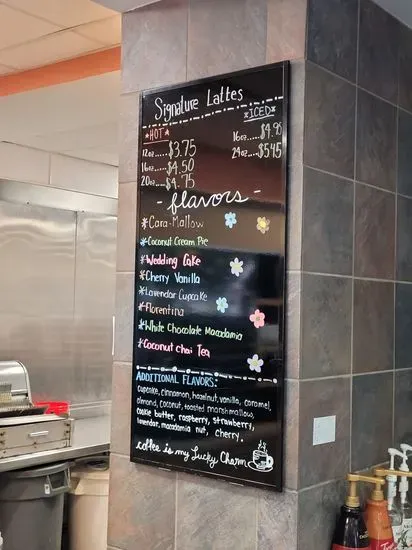 Signature Lattes
*HOT*
12oz.....$3.75
16oz....$4.50
20oz....$4.75
*ICED*
16oz....$4.95
24oz....$5.45
- flavors -
*Cara-Mallow
*Coconut Cream Pie
*Wedding Cake
*Cherry Vanilla
*Lavendar Cupcake
*Florentina
*White Chocolate Macadamia
*Coconut chai Tea
ADDITIONAL FLAVORS:
cupcake, cinnamon, hazelnut, vanilla, caramel,
almond, coconut, toasted marshmallow,
cookie butter, raspberry, strawberry,
lavendar, macadamia nut, cherry.
coffee is my Lucky Charm